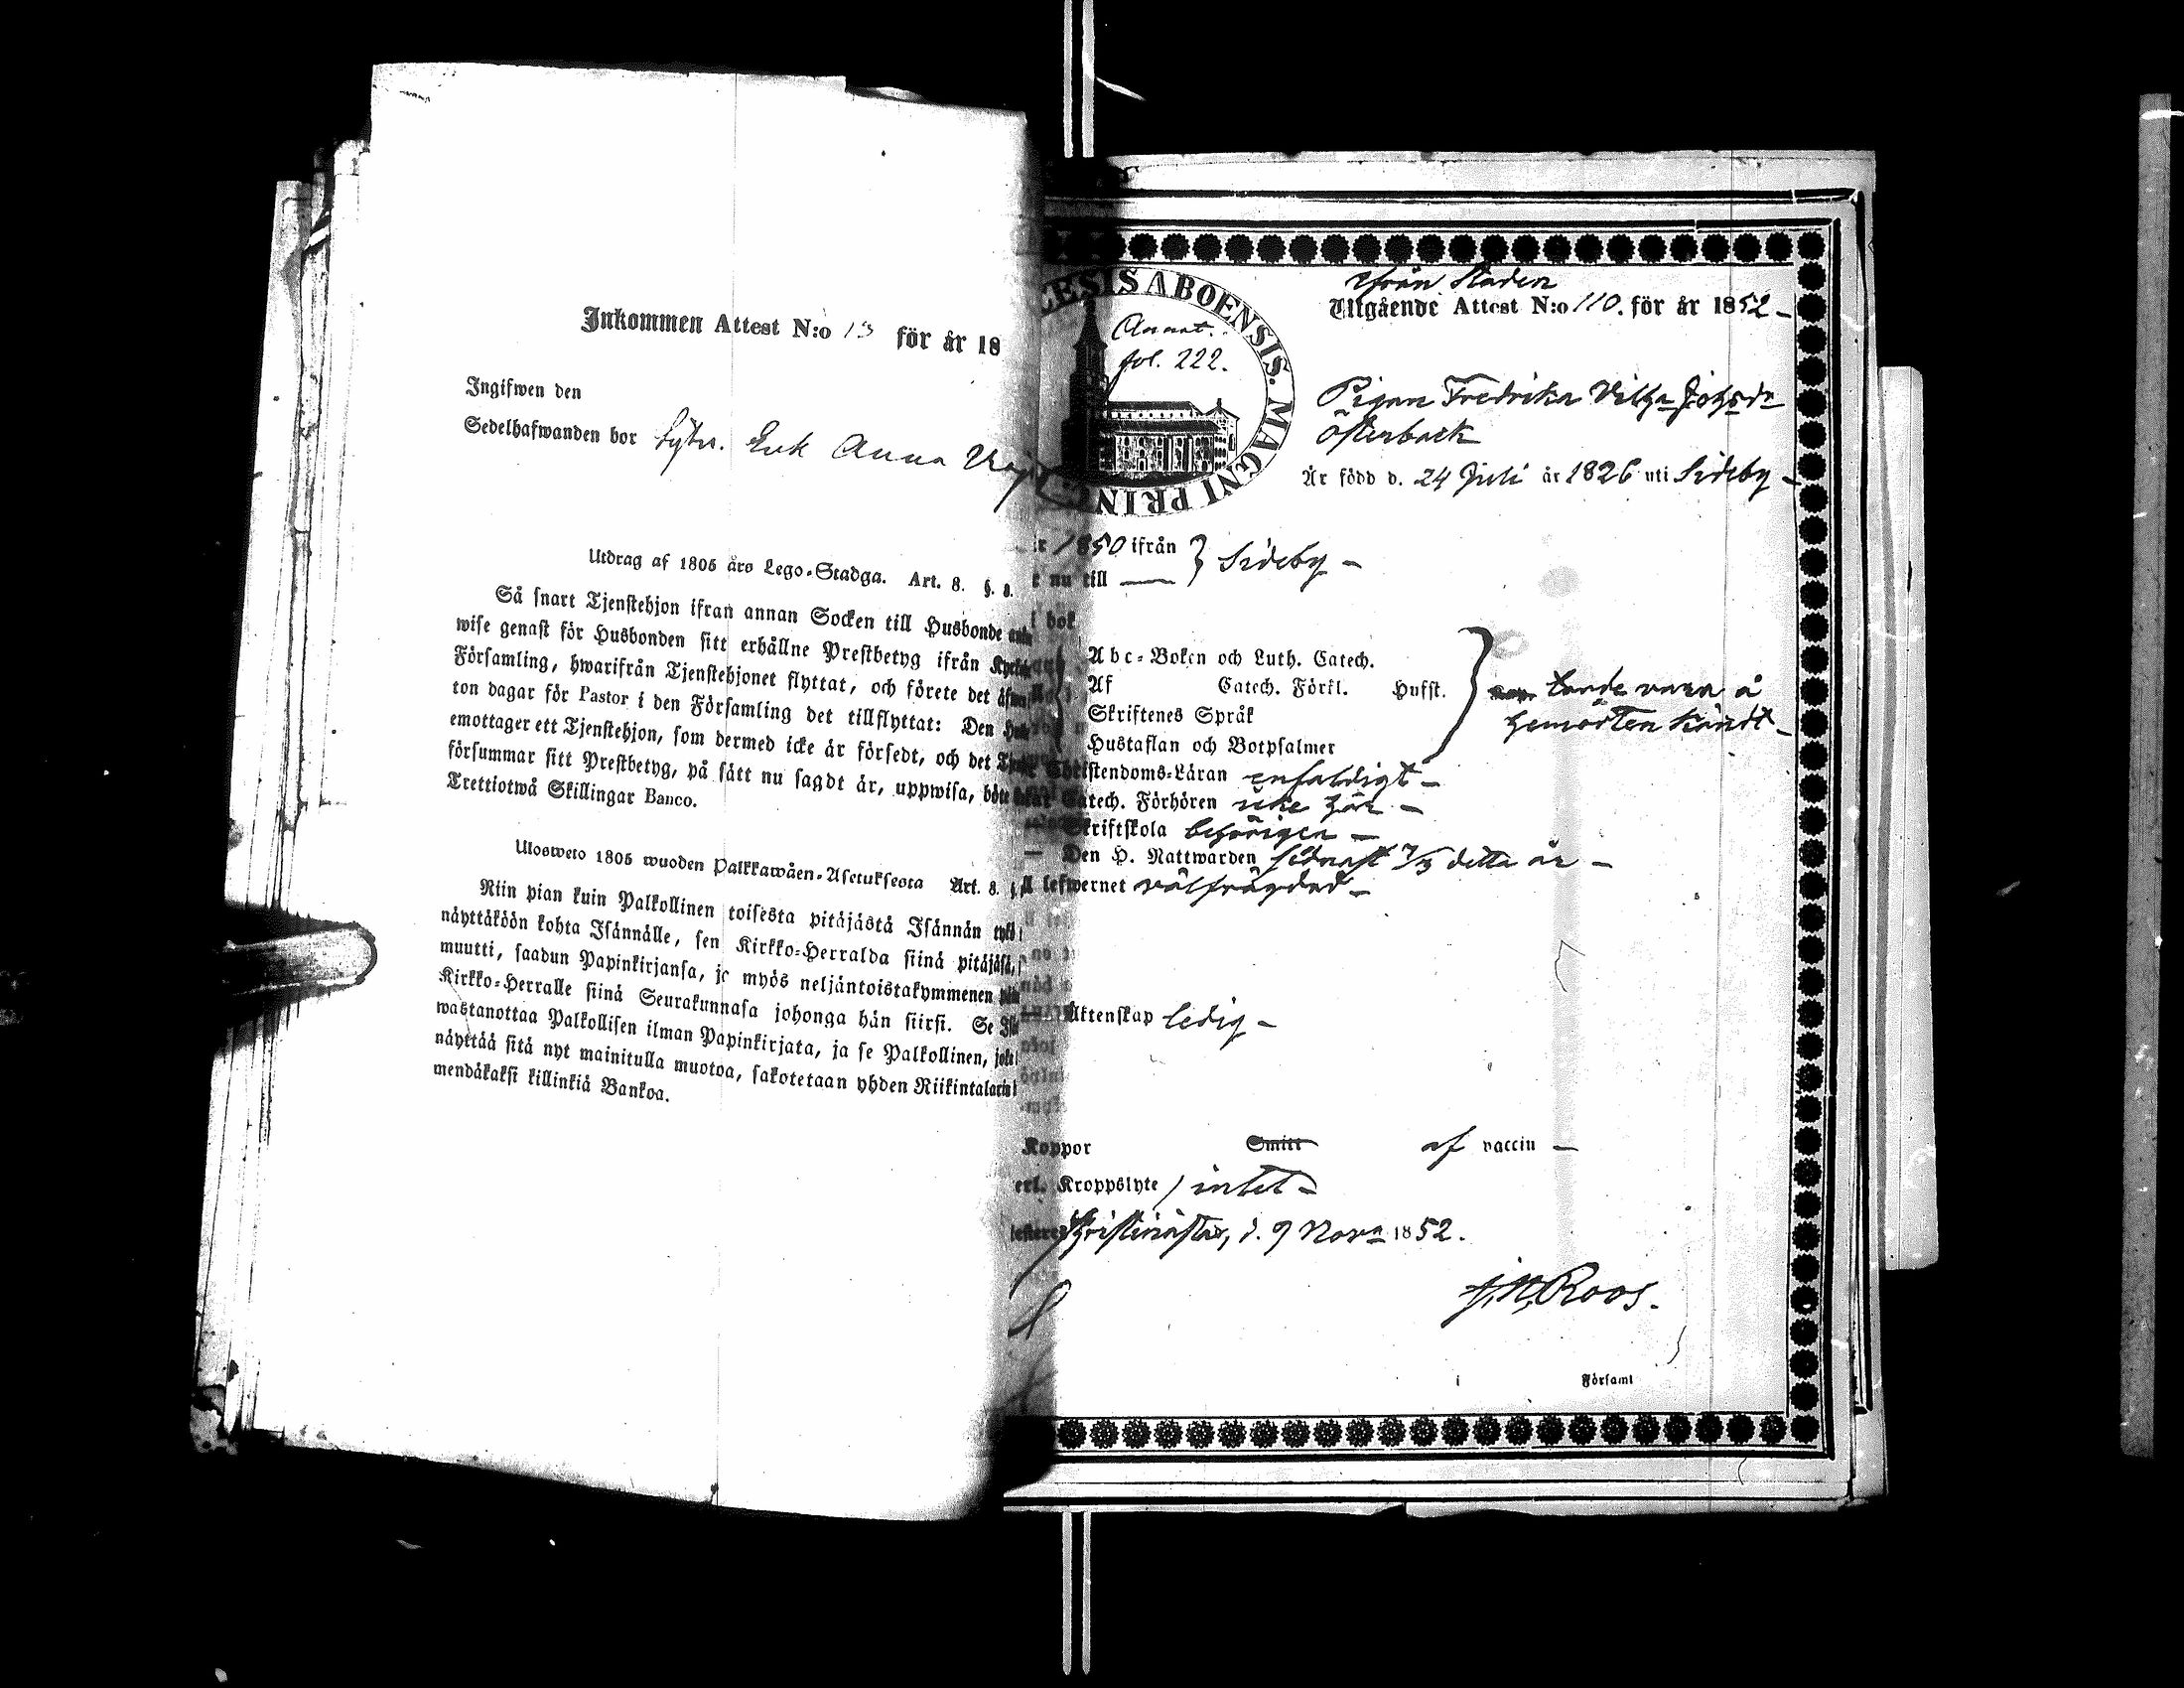 Inkommen Attest N:o 13 för år 18
Ingifwen den
Sedelhafwanden bor Enk Anna
Utdrag af 1805 års Lego-Stadga. Art. 8. §. 8.
Så snart Tjenstehjon ifrån annan Socken till Husbonde
wise genast för Husbonden sitt erhållne Prestbetyg ifrån
Församling, hwarifrån Tjenstehjonet flyttat, och förete det
ton dagar för Pastor i den Församling det tillflyttat: Den
emottager ett Tjenstehjon, som dermed icke är försedt, och det
försummar sitt Prestbetyg, på sätt nu sagdt är, uppwisa, böte
Trettiotwå Skillingar Banco.
Ulosweto 1805 wuoden Palkkawäen-Asetuksesta Art. 8.
Niin pian kuin Palkollinen toisesta pitäjästä Isännän tykö
näyttäköön kohta Isännälle, sen Kirkko-Herralda siinä pitäjäsä,
muutti, saadun Papinkirjansa, ja myös neljäntoistakymmenen
Kirkko-Herralle siinä Seurakunnasa johonga hän siirsi. Se
wastanottaa Palkollisen ilman Papinkirjata, ja se Palkollinen,
näyttää sitä nyt mainitulla muotoa, sakotetaan yhden Riikintalarin
mendäkaksi killinkiä Bankoa.
ESIS ABOENSIS. MAGNI PRIN
Annot.
fol. 222.
ifrån Staden
Utgående Attest N:o 110. för år 1852 -
Pigan Fredrika Vilha Johsdr
Österback
Är född d. 24 Juli år 1826 uti Sideby -
1850 ifrån } Sideby -
nu till —
bok
Abc-Boken och Luth. Catech.
Af Catech. Förkl. Husst.
Skriftenes Språk
Hustaflan och Botpsalmer
} torde vara å
hemorten kändt -
Christendoms-Läran enfaldigt -
Catech. Förhören icke här -
Skriftskola behörigen -
— Den H. Nattwarden sednast 7/3 detta år -
lefwernet välfrägdad -
Äktenskap ledig -
Koppor Smitt af vaccin -
Kroppslyte / intet -
Christinæstad, d. 9 Novr 1852.
Roos.
i Församl